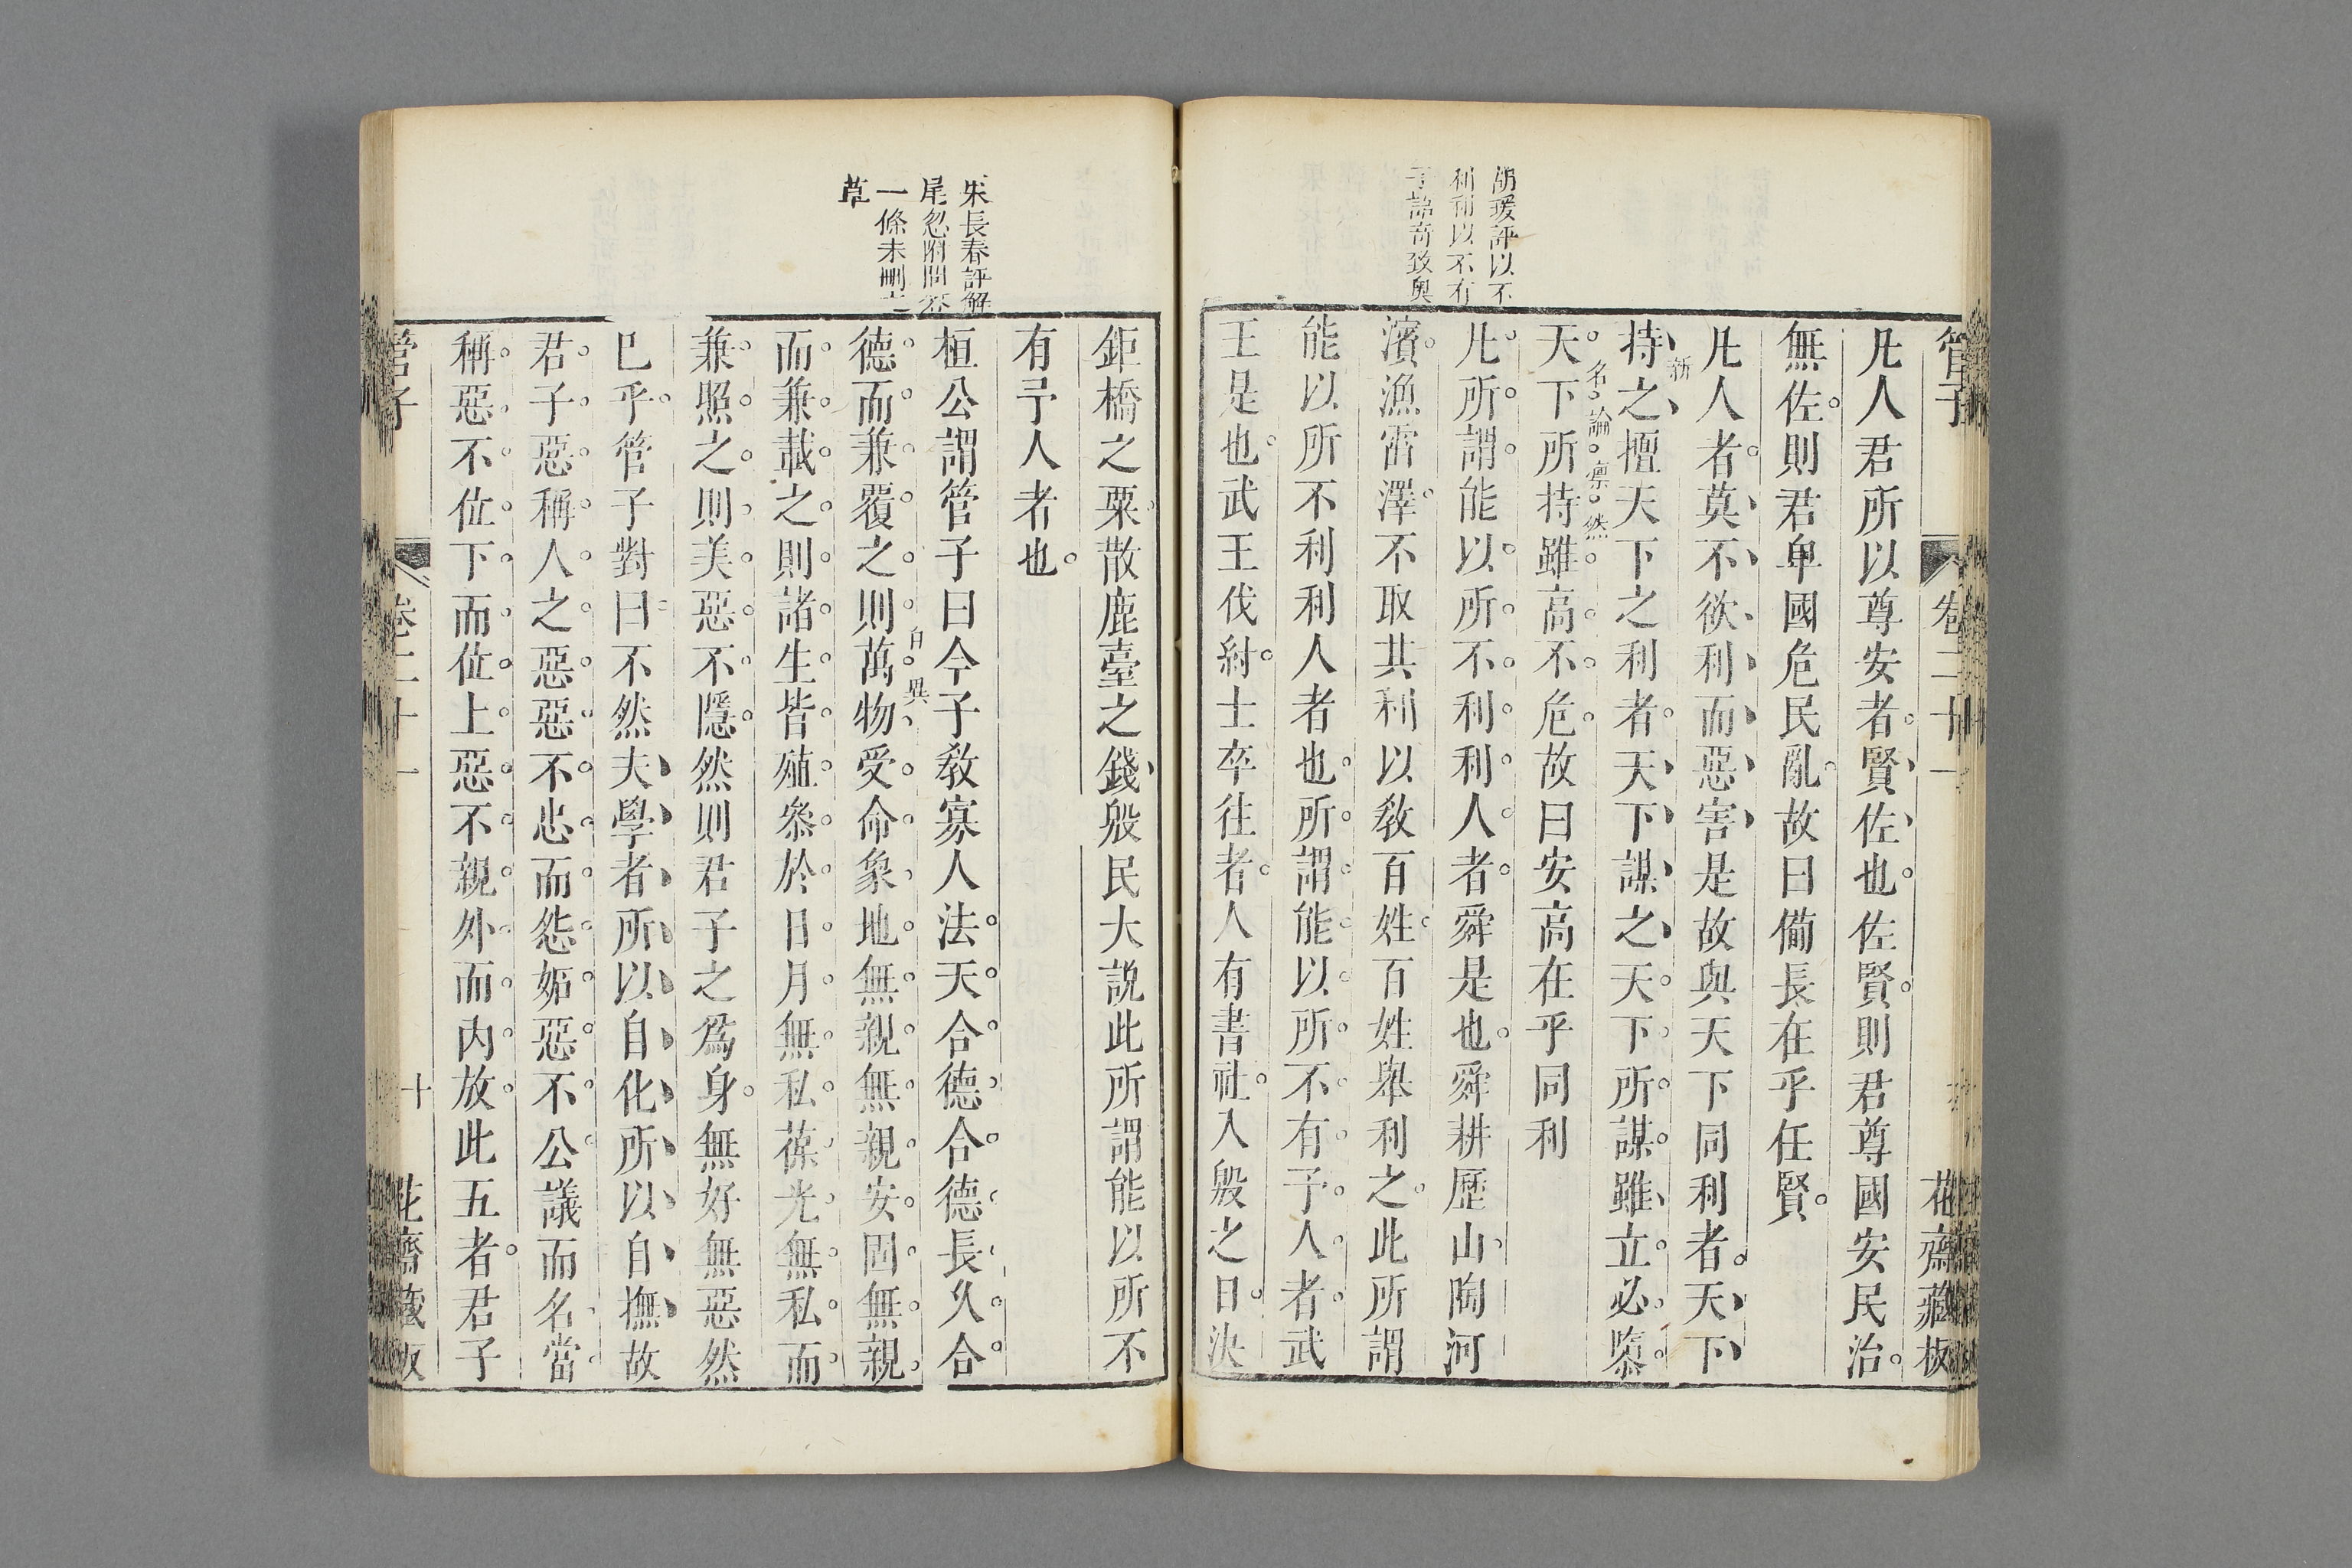 管子
卷二十一
花齋藏板
胡瑗評以不
利利以不有
予語奇致奥
凡人君所以尊安者賢佐也佐賢則君尊國安民治
無佐則君卑國危民亂故曰備長在乎任賢
凡人者莫不欲利而惡害是故與天下同利者天下
新
持之擅天下之利者天下謀之天下所謀雖立必隳
名論凛然
天下所持雖高不危故曰安高在乎同利
凡所謂能以所不利利人者舜是也舜耕歷山陶河
濱漁雷澤不取其利以教百姓百姓舉利之此所謂
能以所不利利人者也所謂能以所不有予人者武
王是也武王伐紂士卒往者人有書社入殷之日決
朱長春評解
尾忽附問答
一條未刪之
草
鉅橋之粟散鹿臺之錢殷民大說此所謂能以所不
有予人者也
桓公謂管子曰今子教寡人法天合德合德長久合
自異
德而兼覆之則萬物受命象地無親無親安固無親
而兼載之則諸生皆殖參於日月無私葆光無私而
兼照之則美惡不隱然則君子之爲身無好無惡然
已乎管子對曰不然夫學者所以自化所以自撫故
君子惡稱人之惡惡不忠而怨妬惡不公議而名當
稱惡不位下而位上惡不親外而内放此五者君子
管子
卷二十一
十
花齋藏板